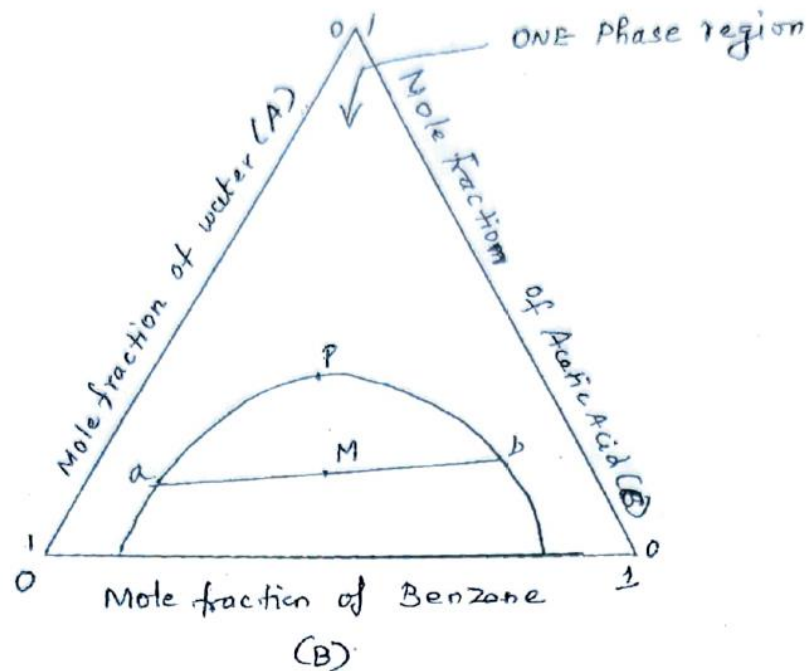 0 1
ONE Phase region
Mole fraction of water (A)
Mole fraction of Acetic Acid (B)
P
a
M
b
1
0
0
1
Mole fraction of Benzone
(B)